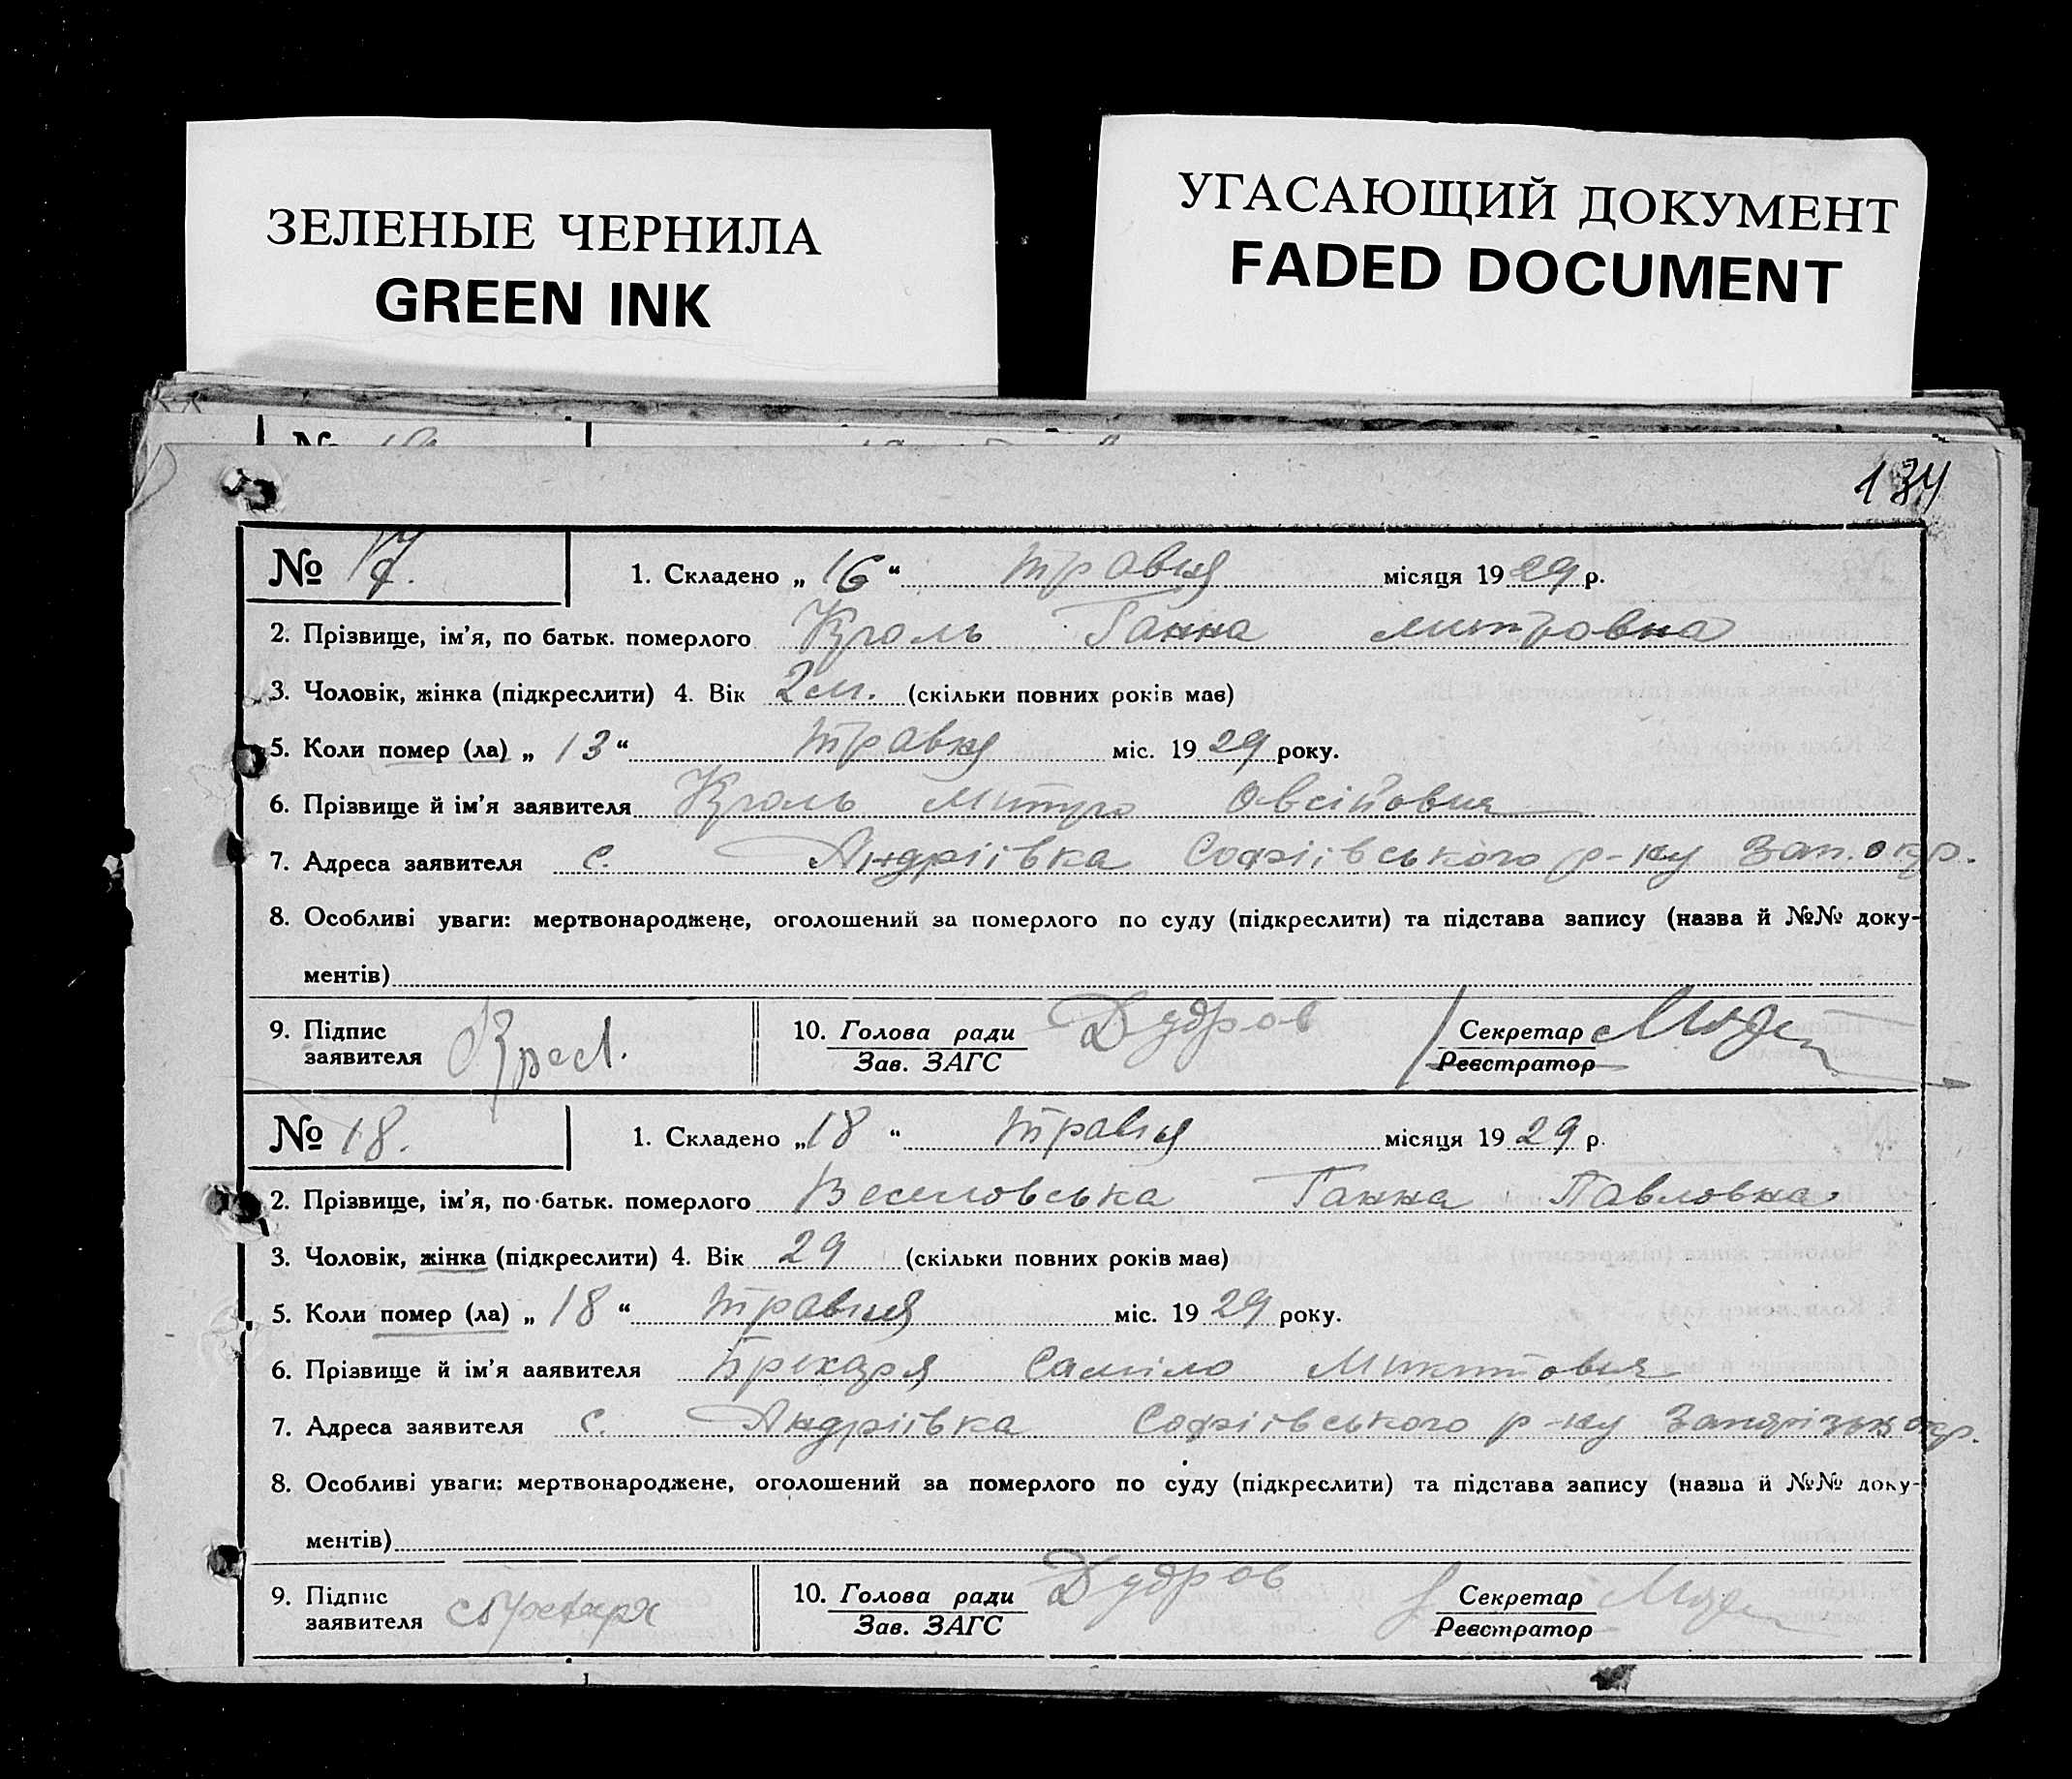 ЗЕЛЕНЫЕ ЧЕРНИЛА
GREEN INK
УГАСАЮЩИЙ ДОКУМЕНТ
FADED DOCUMENT
134
№ 17. 1. Складено „ 16 “ травня місяця 1929 р.
2. Прізвище, ім’я, по батьк. померлого Кроль Ганна митровна
3. Чоловік, жінка (підкреслити) 4. Вік 2 м. (скільки повних років має)
5. Коли помер (ла) „ 13 “ травня міс. 1929 року.
6. Прізвище й ім’я заявителя Кроль Митро Овсійовия
7. Адреса заявителя с. Андріївка Софіівського р-ну Зап. окр.
8. Особливі уваги: мертвонароджене, оголошений за померлого по суду (підкреслити) та підстава запису (назва й №№ доку-
ментів)
9. Підпис заявителя 10. Голова ради Дудров Секретар
Зав. ЗАГС Реєстратор
№ 18. 1. Складено „ 18 “ травня місяця 1929 р.
2. Прізвище, ім’я, по батьк. померлого Веселовська Ганна Павловна.
3. Чоловік, жінка (підкреслити) 4. Вік 29 (скільки повних років має)
5. Коли помер (ла) „ 18 “ травня міс. 1929 року.
6. Прізвище й ім’я ааявителя Саміло Микитовия
7. Адреса заявителя с. Андріївка Софіівського р-ну Запорізьк окр.
8. Особливі уваги: мертвонароджене, оголошений за померлого по суду (підкреслити) та підстава запису (назва й №№ доку-
ментів)
9. Підпис заявителя 10. Голова ради Дудров Секретар
Зав. ЗАГС Реєстратор